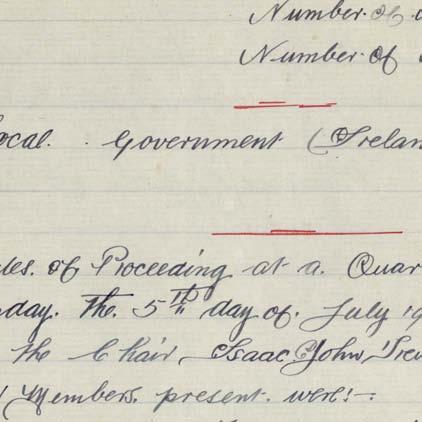 Number of
Number of
ocal. Government (Irelan
les. of Proceeding at a. Quar
day. the. 5th day of. July 19
the Chair, Isaac John Tre
Members. present. were:-